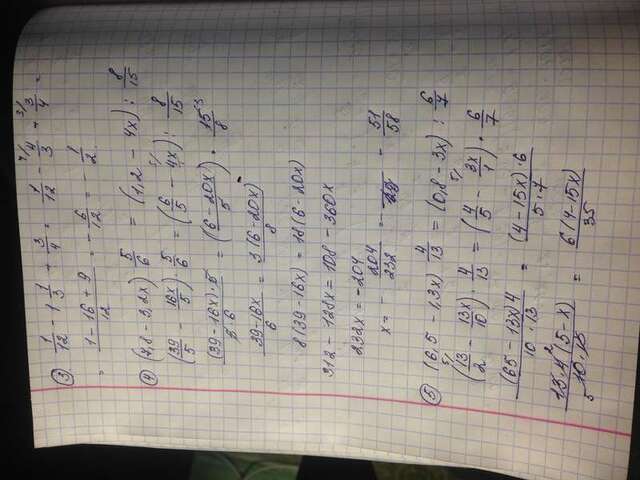 ③ 1/12 - 1 1/3 + 3/4 = 1/12 - 4/ 4/3 + 3/ 3/4 =
= (1-16+9)/12 = - 6/12 = - 1/2.
④ (7,8 - 3,2x) 5/6 = (1,2 - 4x) : 8/15
(39/5 - 16x/5) · 5/6 = (6/5 - 5/ 4x) : 8/15
((39-16x)·5)/(5·6) = ((6-20x)/5) · 15 3/8
(39-16x)/6 = 3(6-20x)/8
8(39-16x) = 18(6-20x)
312 - 128x = 108 - 360x
232x = -204
x = - 204/232 = - - 51/58
⑤ (6,5 - 1,3x) 4/13 = (0,8 - 3x) : 6/7
(5/ 13/2 - 13x/10) · 4/13 = (4/5 - 5/ 3x/1) · 6/7
(65-13x)4/(10·13) = (4-15x)·6/(5·7)
13·4 2(5-x)/(5 10·13) = 6(4-15x)/35